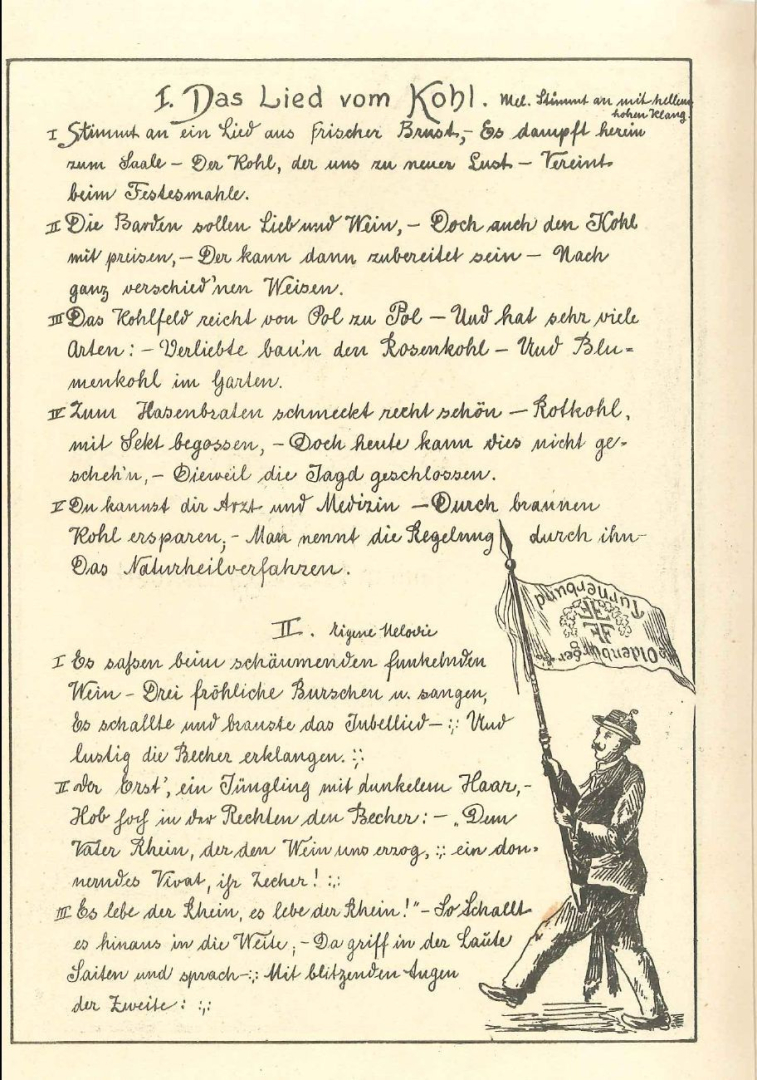 I. Das Lied vom Kohl. Mel. Stimmt an mit hellem
hohen Klang.
I Stimmt an ein Lied aus frischer Brust,- Es dampft herein
zum Saale - Der Kohl, der uns zu neuer Lust - Vereint
beim Festesmahle.
II Die Barden sollen Lieb und Wein, - Doch auch den Kohl
mit preisen, - Der kann dann zubereitet sein - Nach
ganz verschied'nen Weisen.
III Das Kohlfeld reicht von Pol zu Pol - Und hat sehr viele
Arten: - Verliebte bau'n den Rosenkohl - Und Blu=
menkohl im Garten.
IV Zum Hasenbraten schmeckt recht schön - Rotkohl,
mit Sekt begossen, - Doch heute kann dies nicht ge-
scheh'n, - Dieweil die Jagd geschlossen.
V Du kannst dir Arzt und Medizin - Durch braunen
Kohl ersparen; - Man nennt die Regelung durch ihn -
Das Naturheilverfahren.
II. Eigene Melodie
I Es saßen beim schäumenden funkelnden
Wein - Drei fröhliche Burschen u. sangen,
Es schallte und brauste das Jubellied - :,: Und
lustig die Becher erklangen. :,:
II Der Erst', ein Jüngling mit dunkelem Haar, -
Hob hoch in der Rechten den Becher: - „Dem
Vater Rhein, der den Wein uns erzog, :,: ein don=
nerndes Vivat, ihr Zecher! :,:
III Es lebe der Rhein, es lebe der Rhein!" - So Schallt
es hinaus in die Weite; - Da griff in der Laute
Saiten und sprach - :,: Mit blitzenden Augen
der Zweite: :,:
Oldenburger
Turnerbund